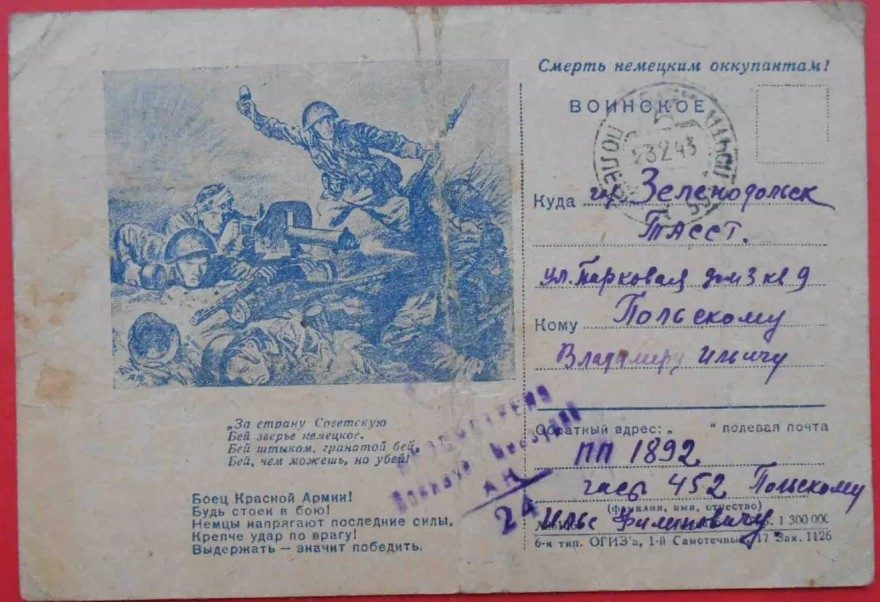 Смерть немецким оккупантам!
ВОИНСКОЕ
23 2 43
Куда гор Зеленодольск
ТАССТ.
ул. Парковая дом 3 кв 9
Кому Польскому
Владимиру Ильичу
„За страну Советскую
Бей зверье немецкое.
Бей штыком, гранатой бей,
Бей, чем можешь, но убей!"
Боец Красной Армии!
Будь стоек в бою!
Немцы напрягают последние силы.
Крепче удар по врагу!
Выдержать — значит победить.
Просмотрено
Военной Цензурой
24
Обратный адрес: „ " полевая почта
ПП 1892
часть 452 Польскому
(фамилия, имя, отчество)
1 300 000
6-я тип. ОГИЗ'а, 1-й Самотечный, 17 Зак. 1126